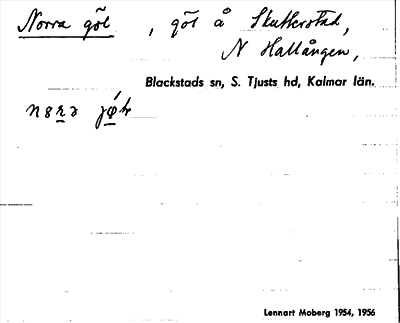 Norra göl, göl å Skutterstad,
N Hallången,
Blackstads sn, S. Tjusts hd, Kalmar län.
Lennart Moberg 1954, 1956